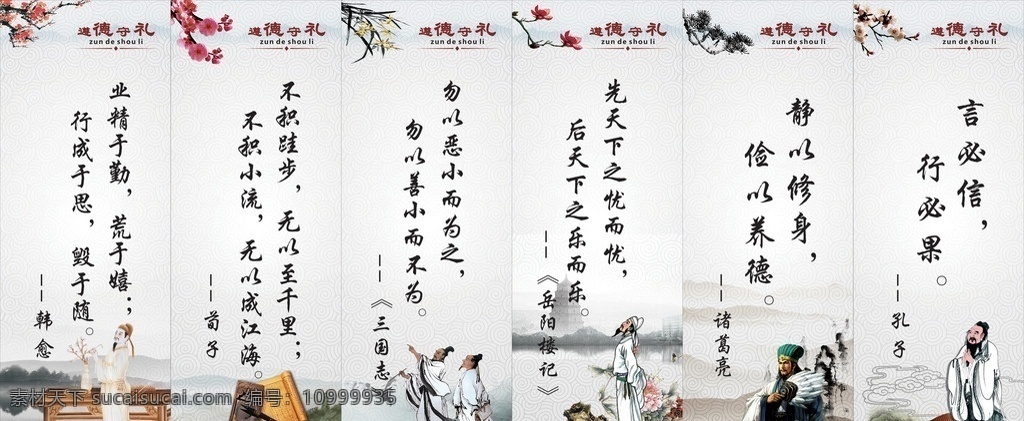 遵德守礼
zun de shou li
业精于勤，荒于嬉；
行成于思，毁于随。
——韩愈
遵德守礼
zun de shou li
不积跬步，无以至千里；
不积小流，无以成江海。
——荀子
遵德守礼
zun de shou li
勿以恶小而为之，
勿以善小而不为。
——《三国志》
遵德守礼
zun de shou li
先天下之忧而忧，
后天下之乐而乐。
——《岳阳楼记》
遵德守礼
zun de shou li
静以修身，
俭以养德。
——诸葛亮
遵德守礼
zun de shou li
言必信，
行必果。
——孔子
素材天下 sucaisucai.com 编号：10999935